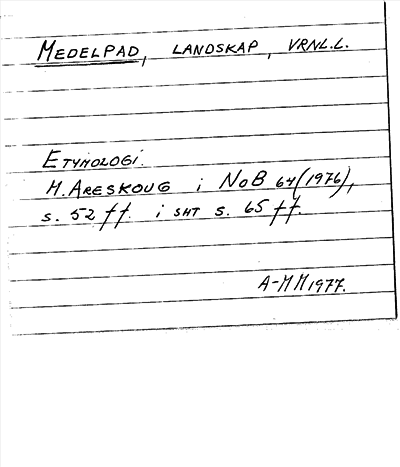 MEDELPAD, LANDSKAP, VRNL.L.
ETYMOLOGI:
H. ARESKOUG i NoB 64 (1976),
s. 52 ff. i SHT s. 65 ff.
A-MM 1977.